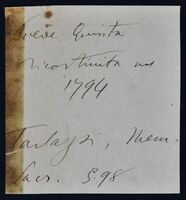 Pieve Quinta
ricostruita nel
1794
Tarlazzi, Mem.
Sacr. S. 98